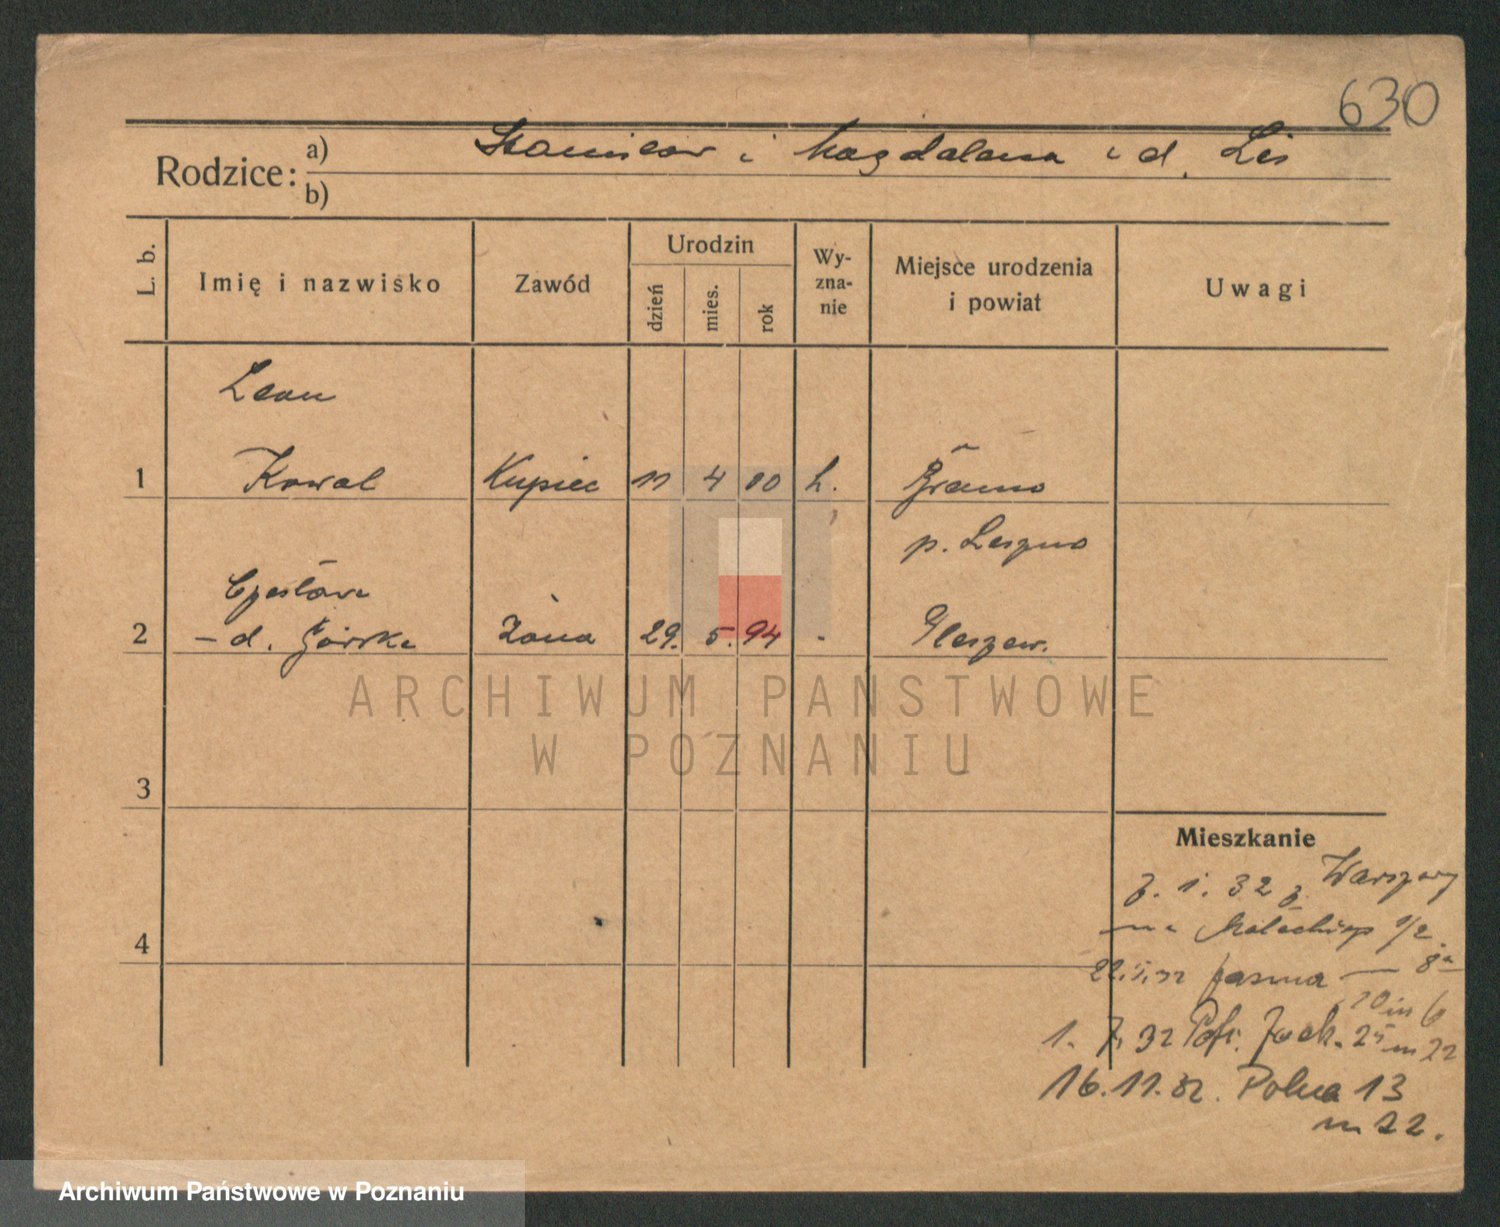 630
Rodzice: a) Stanisław i Magdalena i d. Lis
b)
L. b. Imię i nazwisko Zawód Urodzin dzień mies. rok Wy- zna- nie Miejsce urodzenia i powiat Uwagi
Leon
1 Kowal Kupiec 11 4 00
p. Leszno
Czesława
2 – d. Górska żona 29. 5. 94 Pleszew.
3
4
Mieszkanie
1. 32 z Warszawy
22. 5. 32 Jasna — 8a
10 m 6
1. 7. 32 Jack. 25 m 22
16. 11. 32. Polna 13
m 22.
ARCHIWUM PANSTWOWE
W POZNANIU
Archiwum Państwowe w Poznaniu